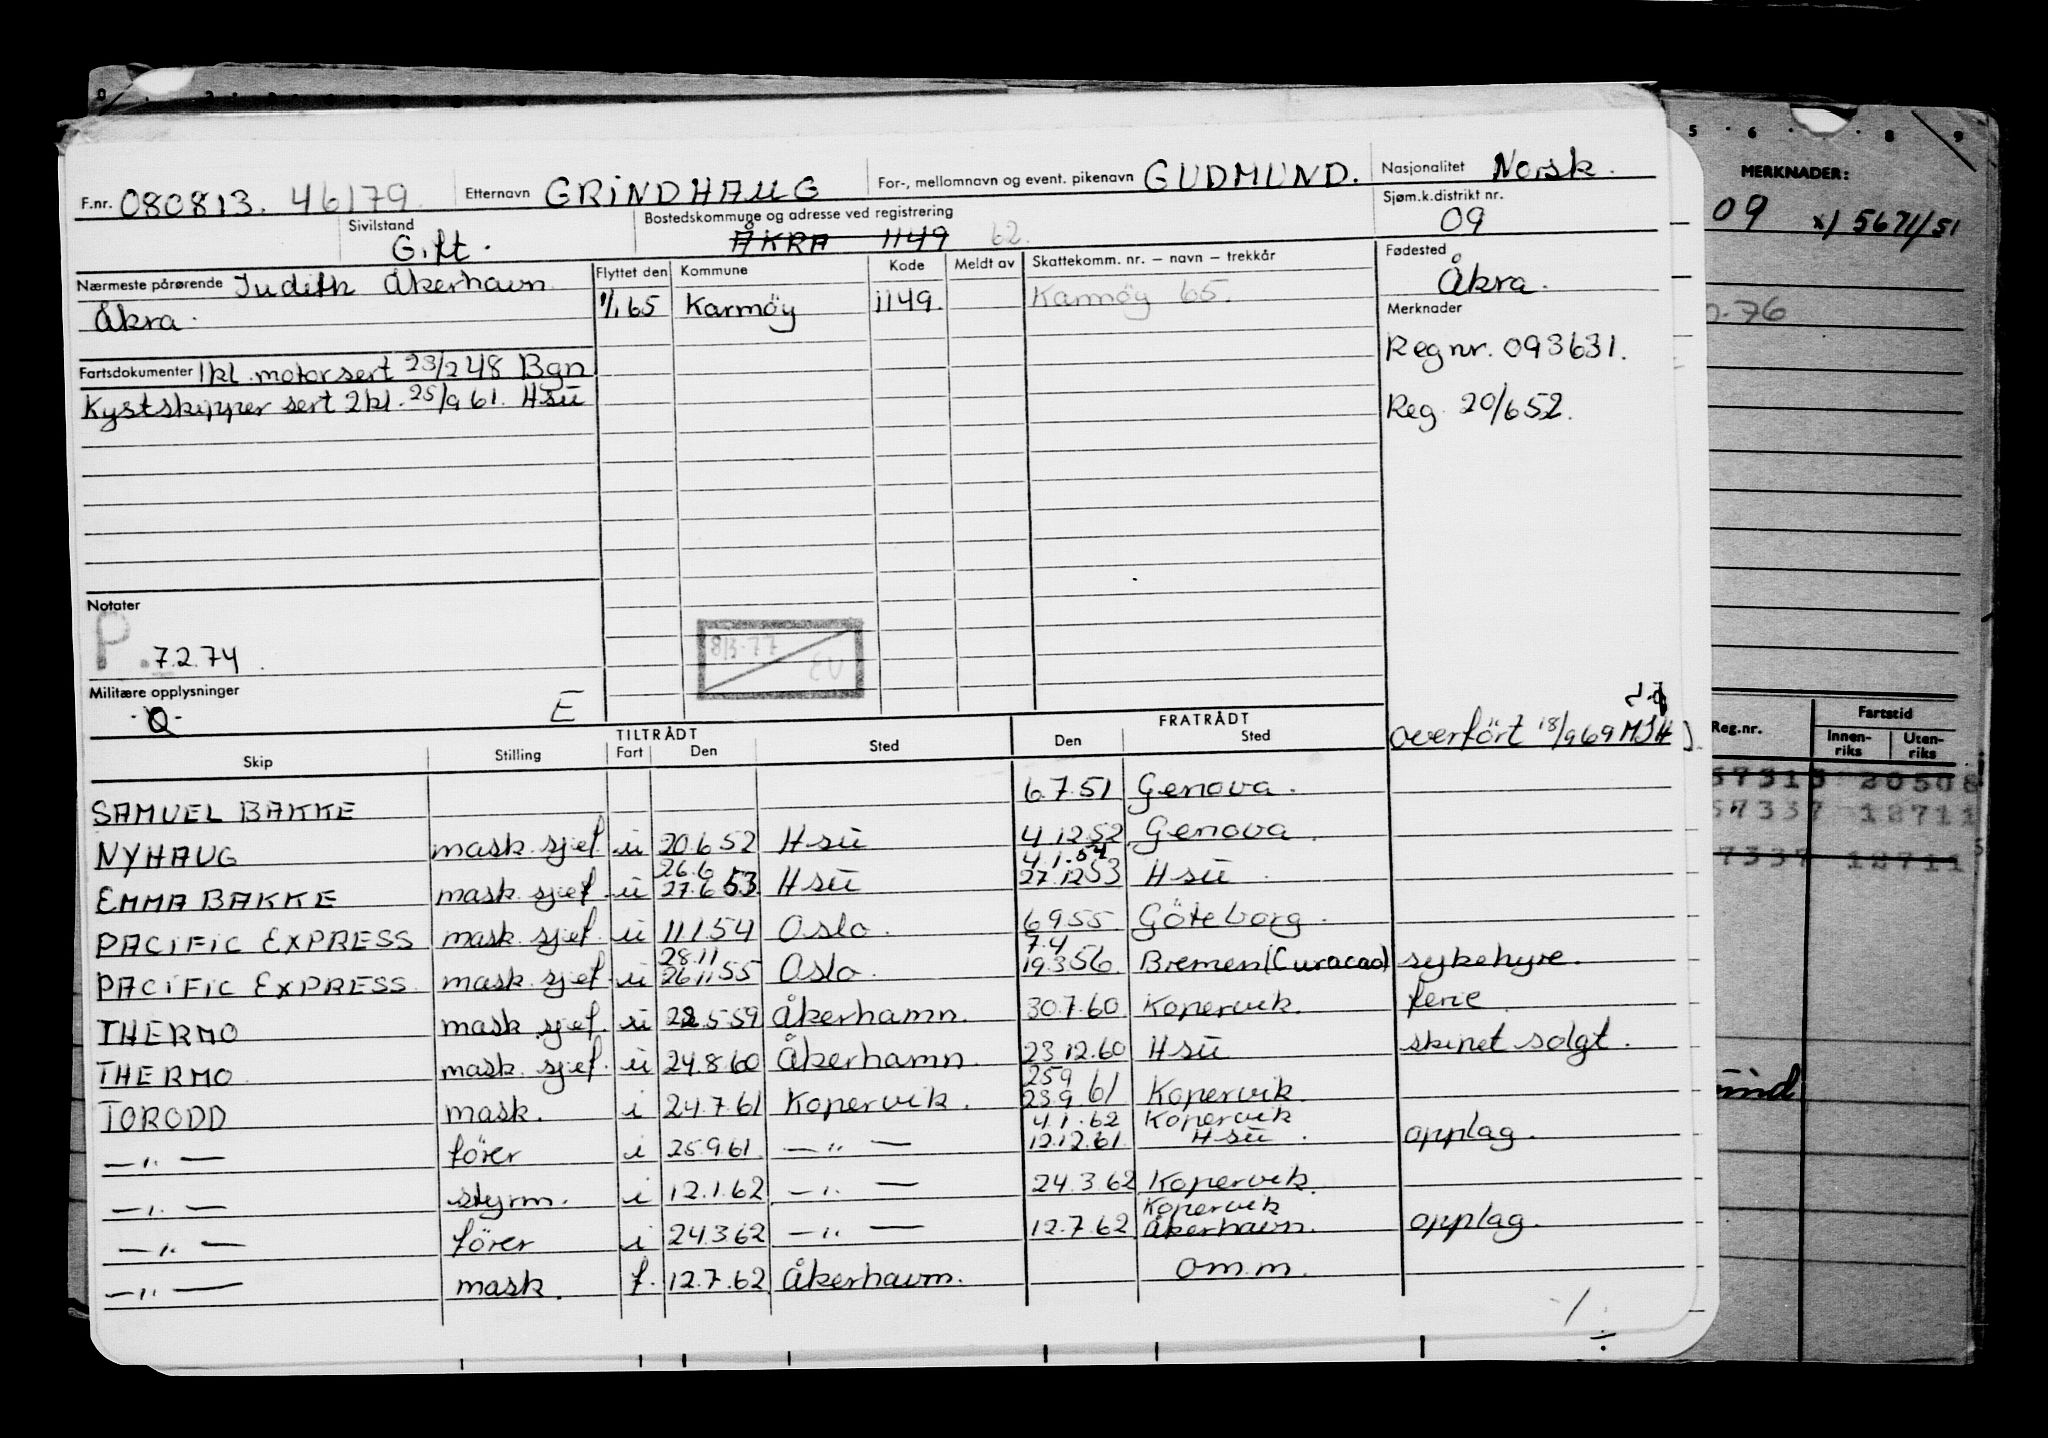 F.nr. 080813. 46179. Etternavn GRINDHAUG For-, mellomnavn og event. pikenavn GUDMUND. Nasjonalitet Norsk.
Sivilstand Gift. Bostedskommune og adresse ved registrering ÅKRA 1149 62. Sjøm.k.distrikt nr. 09
Nærmeste pårørende Judith Åkerhavn Flyttet den Kommune Kode Meldt av Skattekomm. nr. – navn – trekkår Fødested Åkra.
Åkra. 1/1 65 Karmöy 1149. Karmöy 65. Merknader
Reg nr. 093631.
Fartsdokumenter 1 kl. motorsert 23/2 48 Bgn
Kystskipper sert 2 kl. 25/9 61. Hsu Reg. 20/6 52.
Notater
P. 7.2.74.
8/3-77 EU
Militære opplysninger E
Q
TILTRÅDT FRATRÅDT overfört 18/9 69 MSH
Skip Stilling Fart Den Sted Den Sted
SAMUEL BAKKE 6.7.51 Genova.
NYHAUG mask. sjef u 20.6 52 Hsu 4.12.52 Genova.
26.6 4.1.54
EMMA BAKKE mask. sjef. u 27.6 53 Hsu 27.12 53 Hsu.
PACIFIC EXPRESS mask. sjef. u 11.1.54 Oslo. 6 9 55 Göteborg.
28.11 7.4
PACIFIC EXPRESS. mask. sjef. u 26 11 55 Oslo. 19.3 56 Bremen (Curacao) sykehyre.
THERMO mask sjef. u 22.5 59 Åkerhamn. 30.7.60 Kopervik. ferie
THERMO. mask. sjef. u 24.8 60 Åkerhamn. 23 12.60 Hsu skipet solgt.
25 9
TORODD mask. i 24.7.61 Kopervik. 23.9 61 Kopervik.
4.1.62 Kopervik
—„— förer i 25.9.61 —„— 12.12.61. Hsu. opplag.
—„— styrm. i 12.1.62 —„— 24.3.62 Kopervik.
Kopervik
—„— förer i 24.3 62 —„— 12.7.62 Åkerhavn. opplag.
—„— mask. f. 12.7.62 Åkerhavn. om.m.
5 · 6 · 8 9
MERKNADER:
09 x) 5671/51
76
Reg.nr. Fartstid
Innen-riks Uten-riks
57313 20508
57337 12711
7337 12711